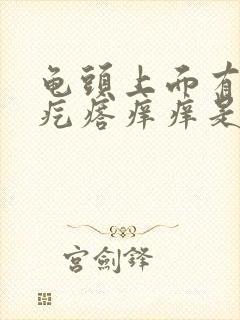 龟頭上面有
疙瘩痒痒是
宫劍鋒